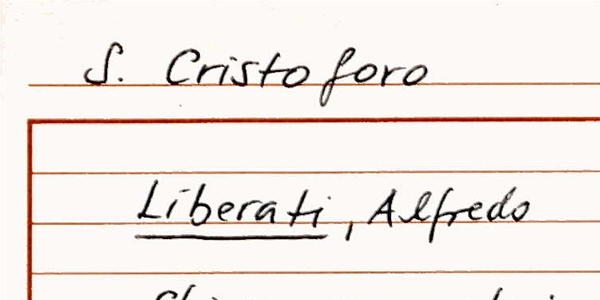 S. Cristoforo
Liberati, Alfredo